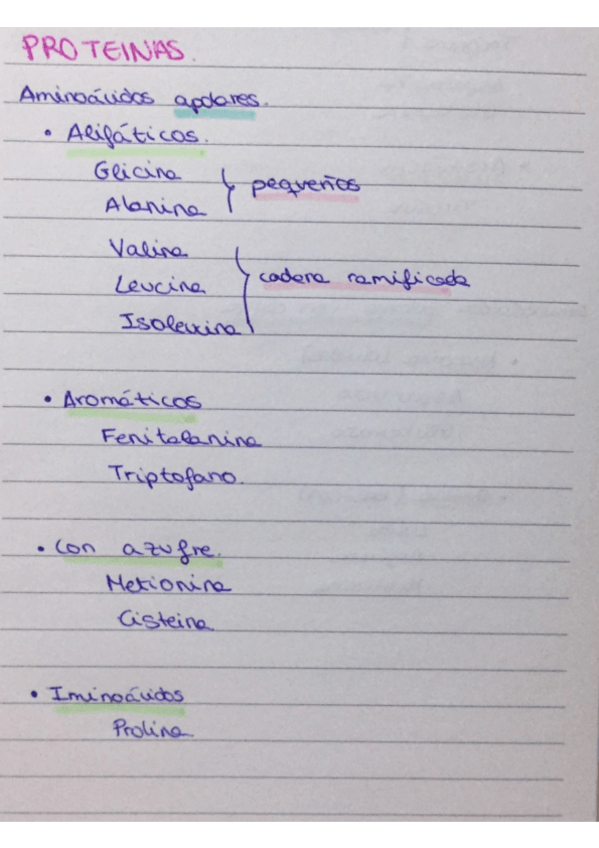 PROTEINAS.
Aminoácidos apolares.
• Alifáticos.
Glicina
pequeños
Alanina
Valina
Leucina
cadena ramificada
Isoleucina
• Aromáticos
Fenilalanina
Triptofano.
• Con azufre.
Metionina
Cisteina
• Iminoácidos
Prolina